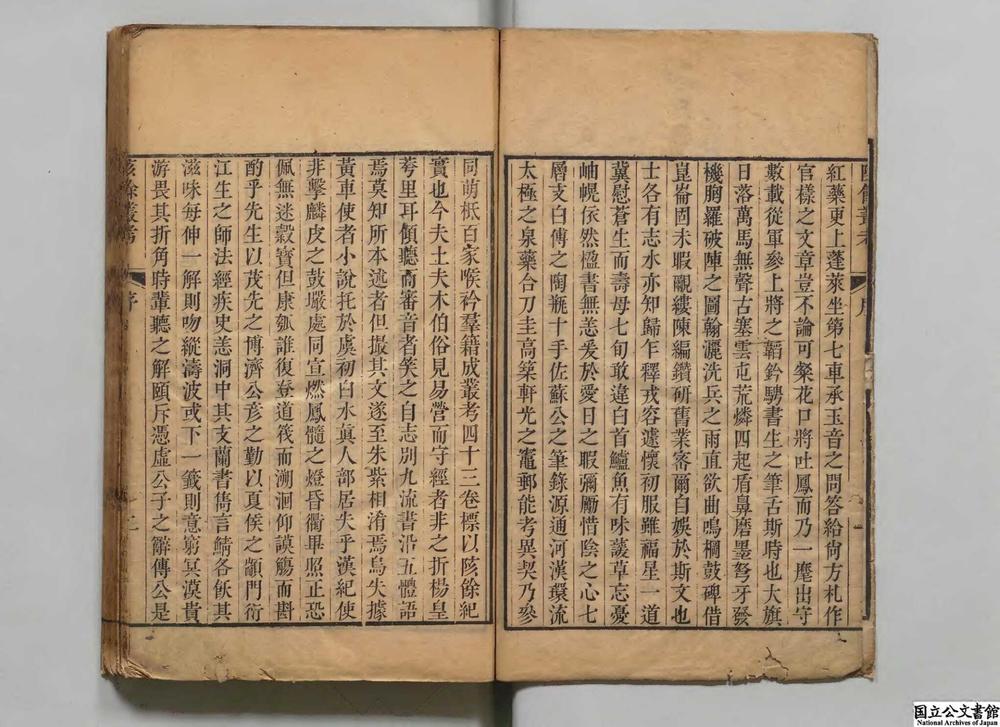 陔餘叢考 序
紅藥更上蓬萊坐第七車承玉音之問答給尙方札作
官樣之文章豈不論可粲花口將吐鳳而乃一麾出守
數載從軍參上將之韜鈐騁書生之筆舌斯時也大旗
日落萬馬無聲古塞雲屯荒燐四起盾鼻磨墨弩牙發
機胸羅破陣之圖翰灑洗兵之雨直欲曲鳴榈鼓碑借
崑崙固未暇覼縷陳編鑽研舊業審爾自娛於斯文也
士各有志水亦知歸乍釋戎容遽懷初服雖福星一道
冀慰蒼生而壽母七旬敢違白首鱸魚有味諼草忘憂
岫幌依然楹書無恙爰於愛日之暇彌勵惜陰之心七
層支白傅之陶瓶十手佐蘇公之筆錄源通河漢環流
太極之泉藥合刀圭高築軒光之竈郵能考異契乃參
同萌柢百家喉衿羣籍成叢考四十三卷標以陔餘紀
實也今夫土夫木伯俗見易營而守經者非之折楊皇
荂里耳傾聽而審音者笑之自志別九流書沿五體語
焉莫知所本述者但撮其文遂至朱紫相淆焉烏失據
黃車使者小說托於虞初白水眞人部居失乎漢紀使
非擊麟皮之鼓嚴處同宣燃鳳髓之燈昏衢畢照正恐
佩無迷穀寶但康瓠誰復登道筏而溯洄仰謨觴而斟
酌乎先生以茂先之博濟公彥之勤以夏侯之顓門衍
江生之師法經疾史恙洞中其支蘭書雋言鯖各飫其
滋味每伸一解則吻縱濤波或下一籤則意窮冥漠貴
游畏其折角時輩聽之解頤斥憑虛公子之辭傳公是
陔餘叢考
序
二
国立公文書館
National Archives of Japan